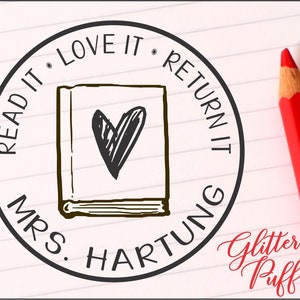 READ IT • LOVE IT • RETURN IT
MRS. HARTUNG
Glitter
Puff